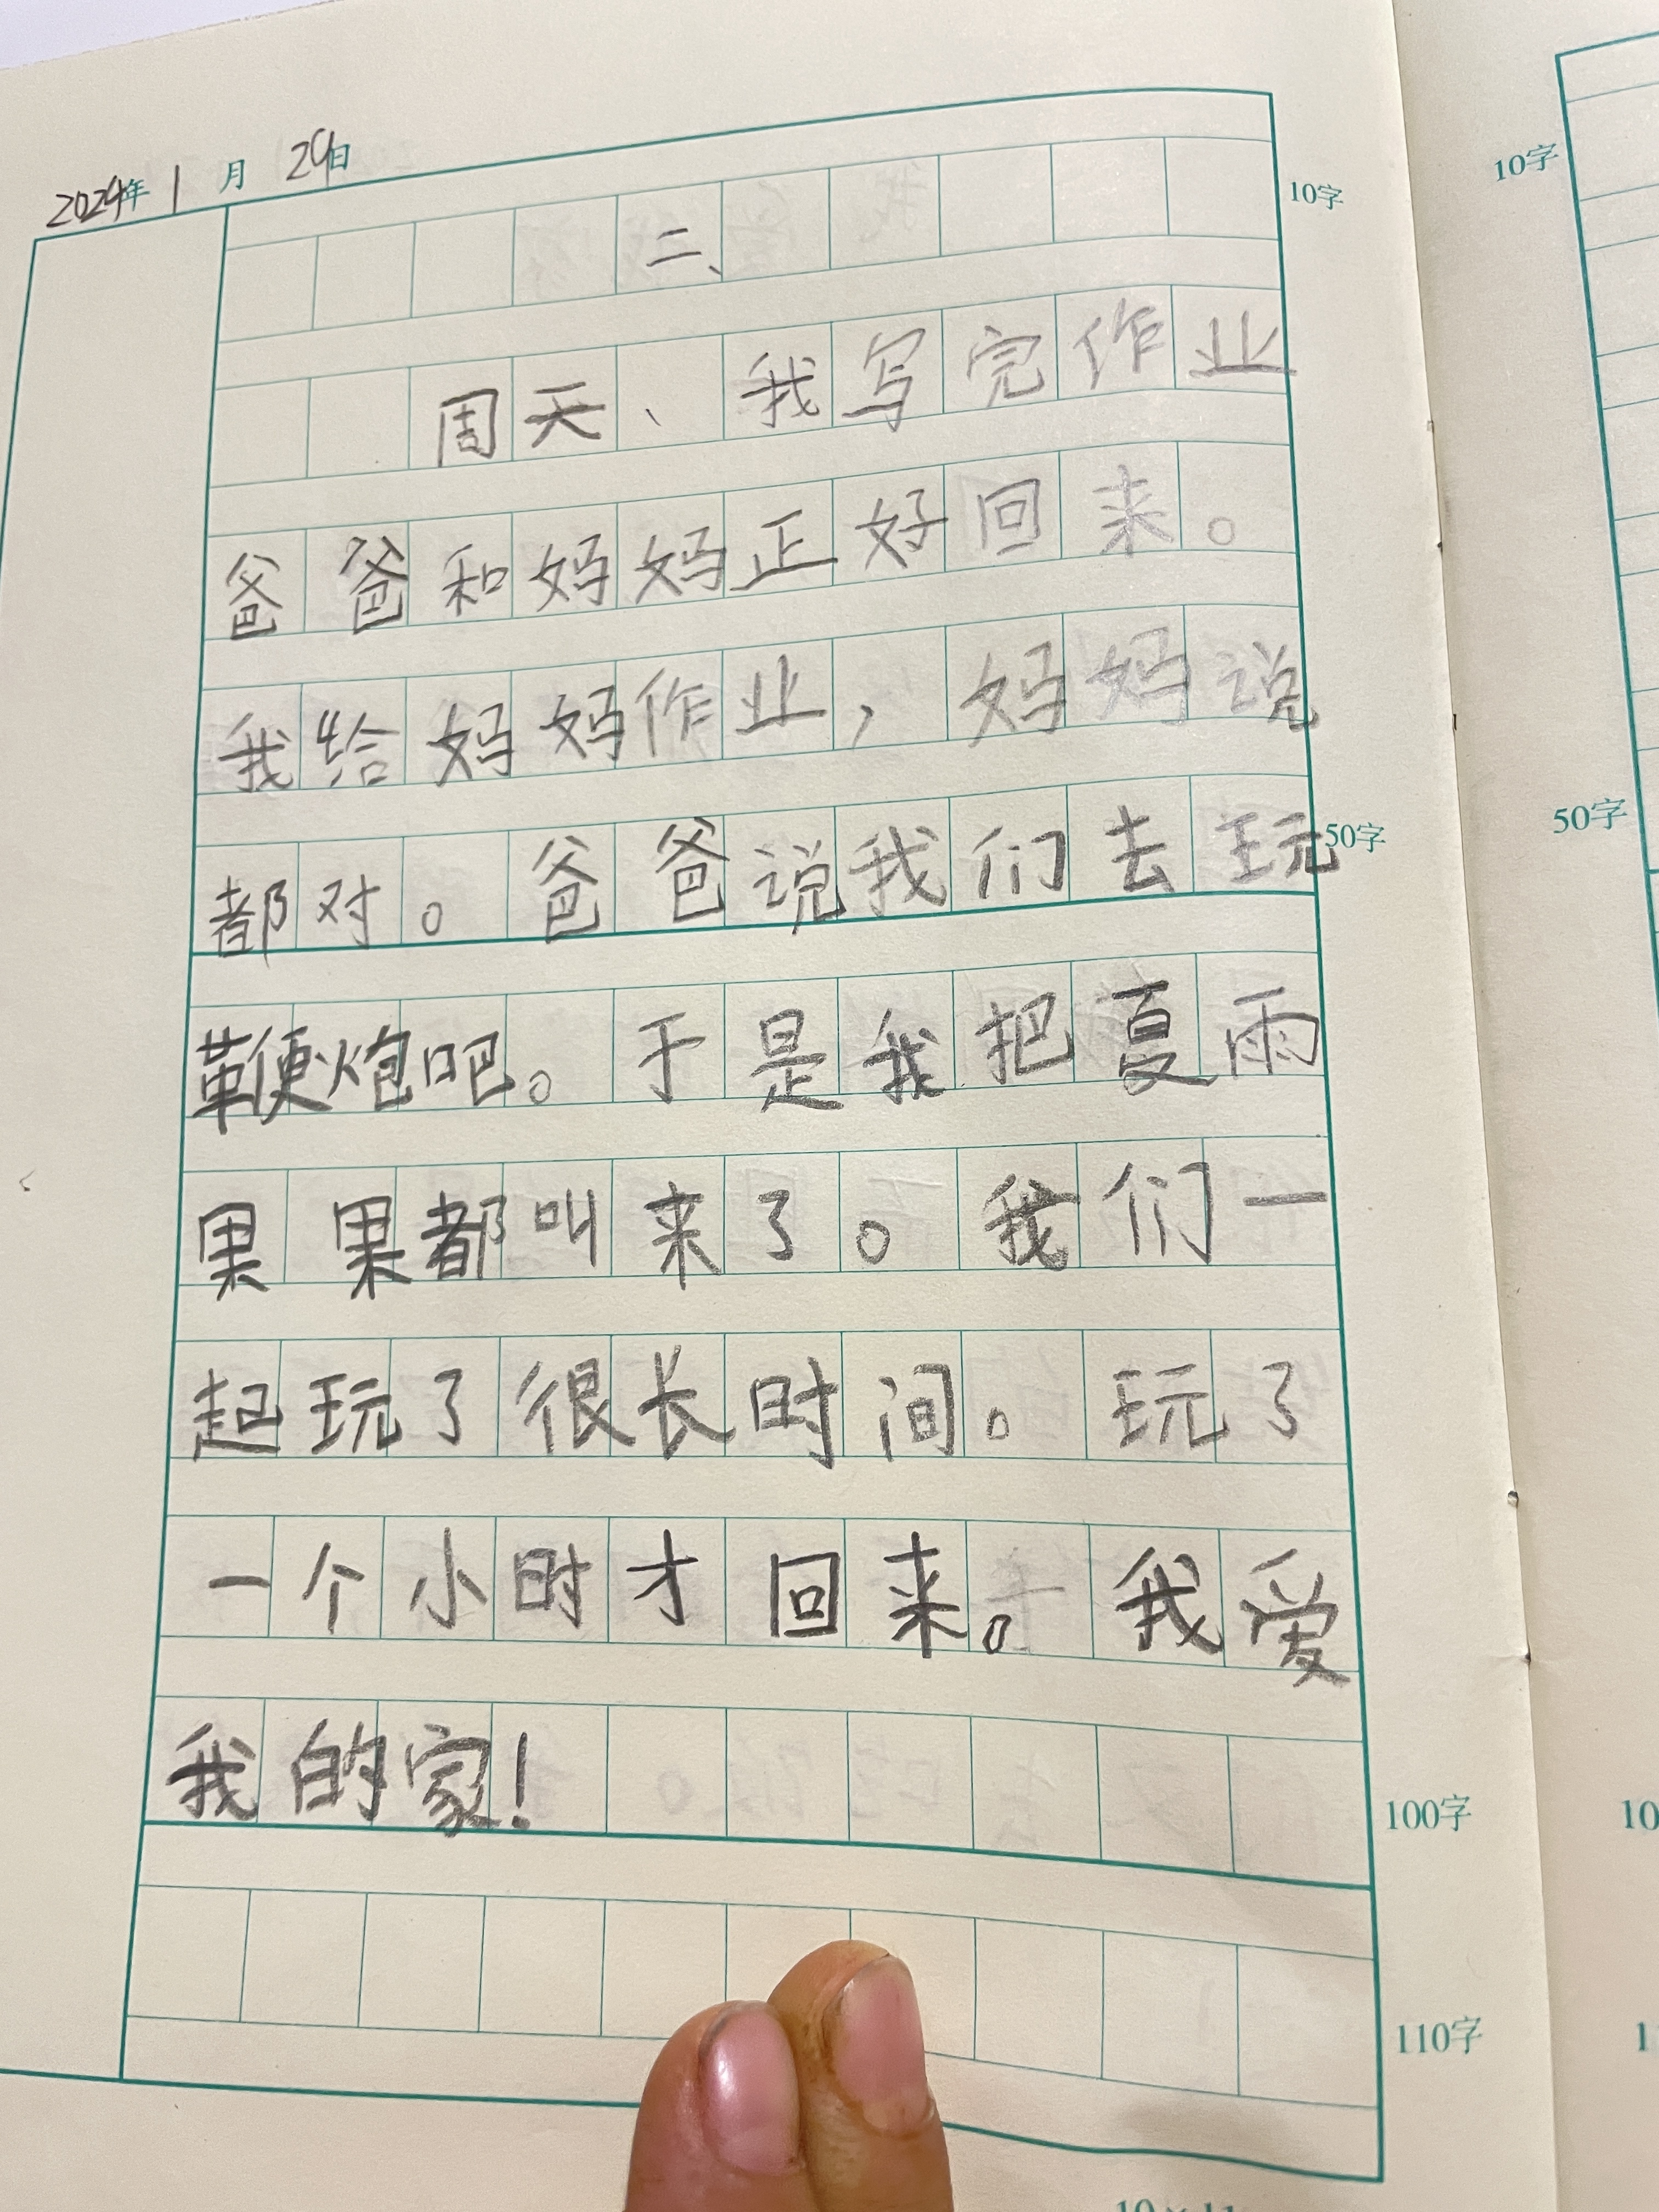 2024年1月29日
二、
周天、我写完作业
爸爸和妈妈正好回来。
我给妈妈作业，妈妈说
都对。爸爸说我们去玩
鞭炮吧。于是我把夏雨
果果都叫来了。我们一
起玩了很长时间。玩了
一个小时才回来。我爱
我的家！
10字
50字
100字
110字
10字
50字